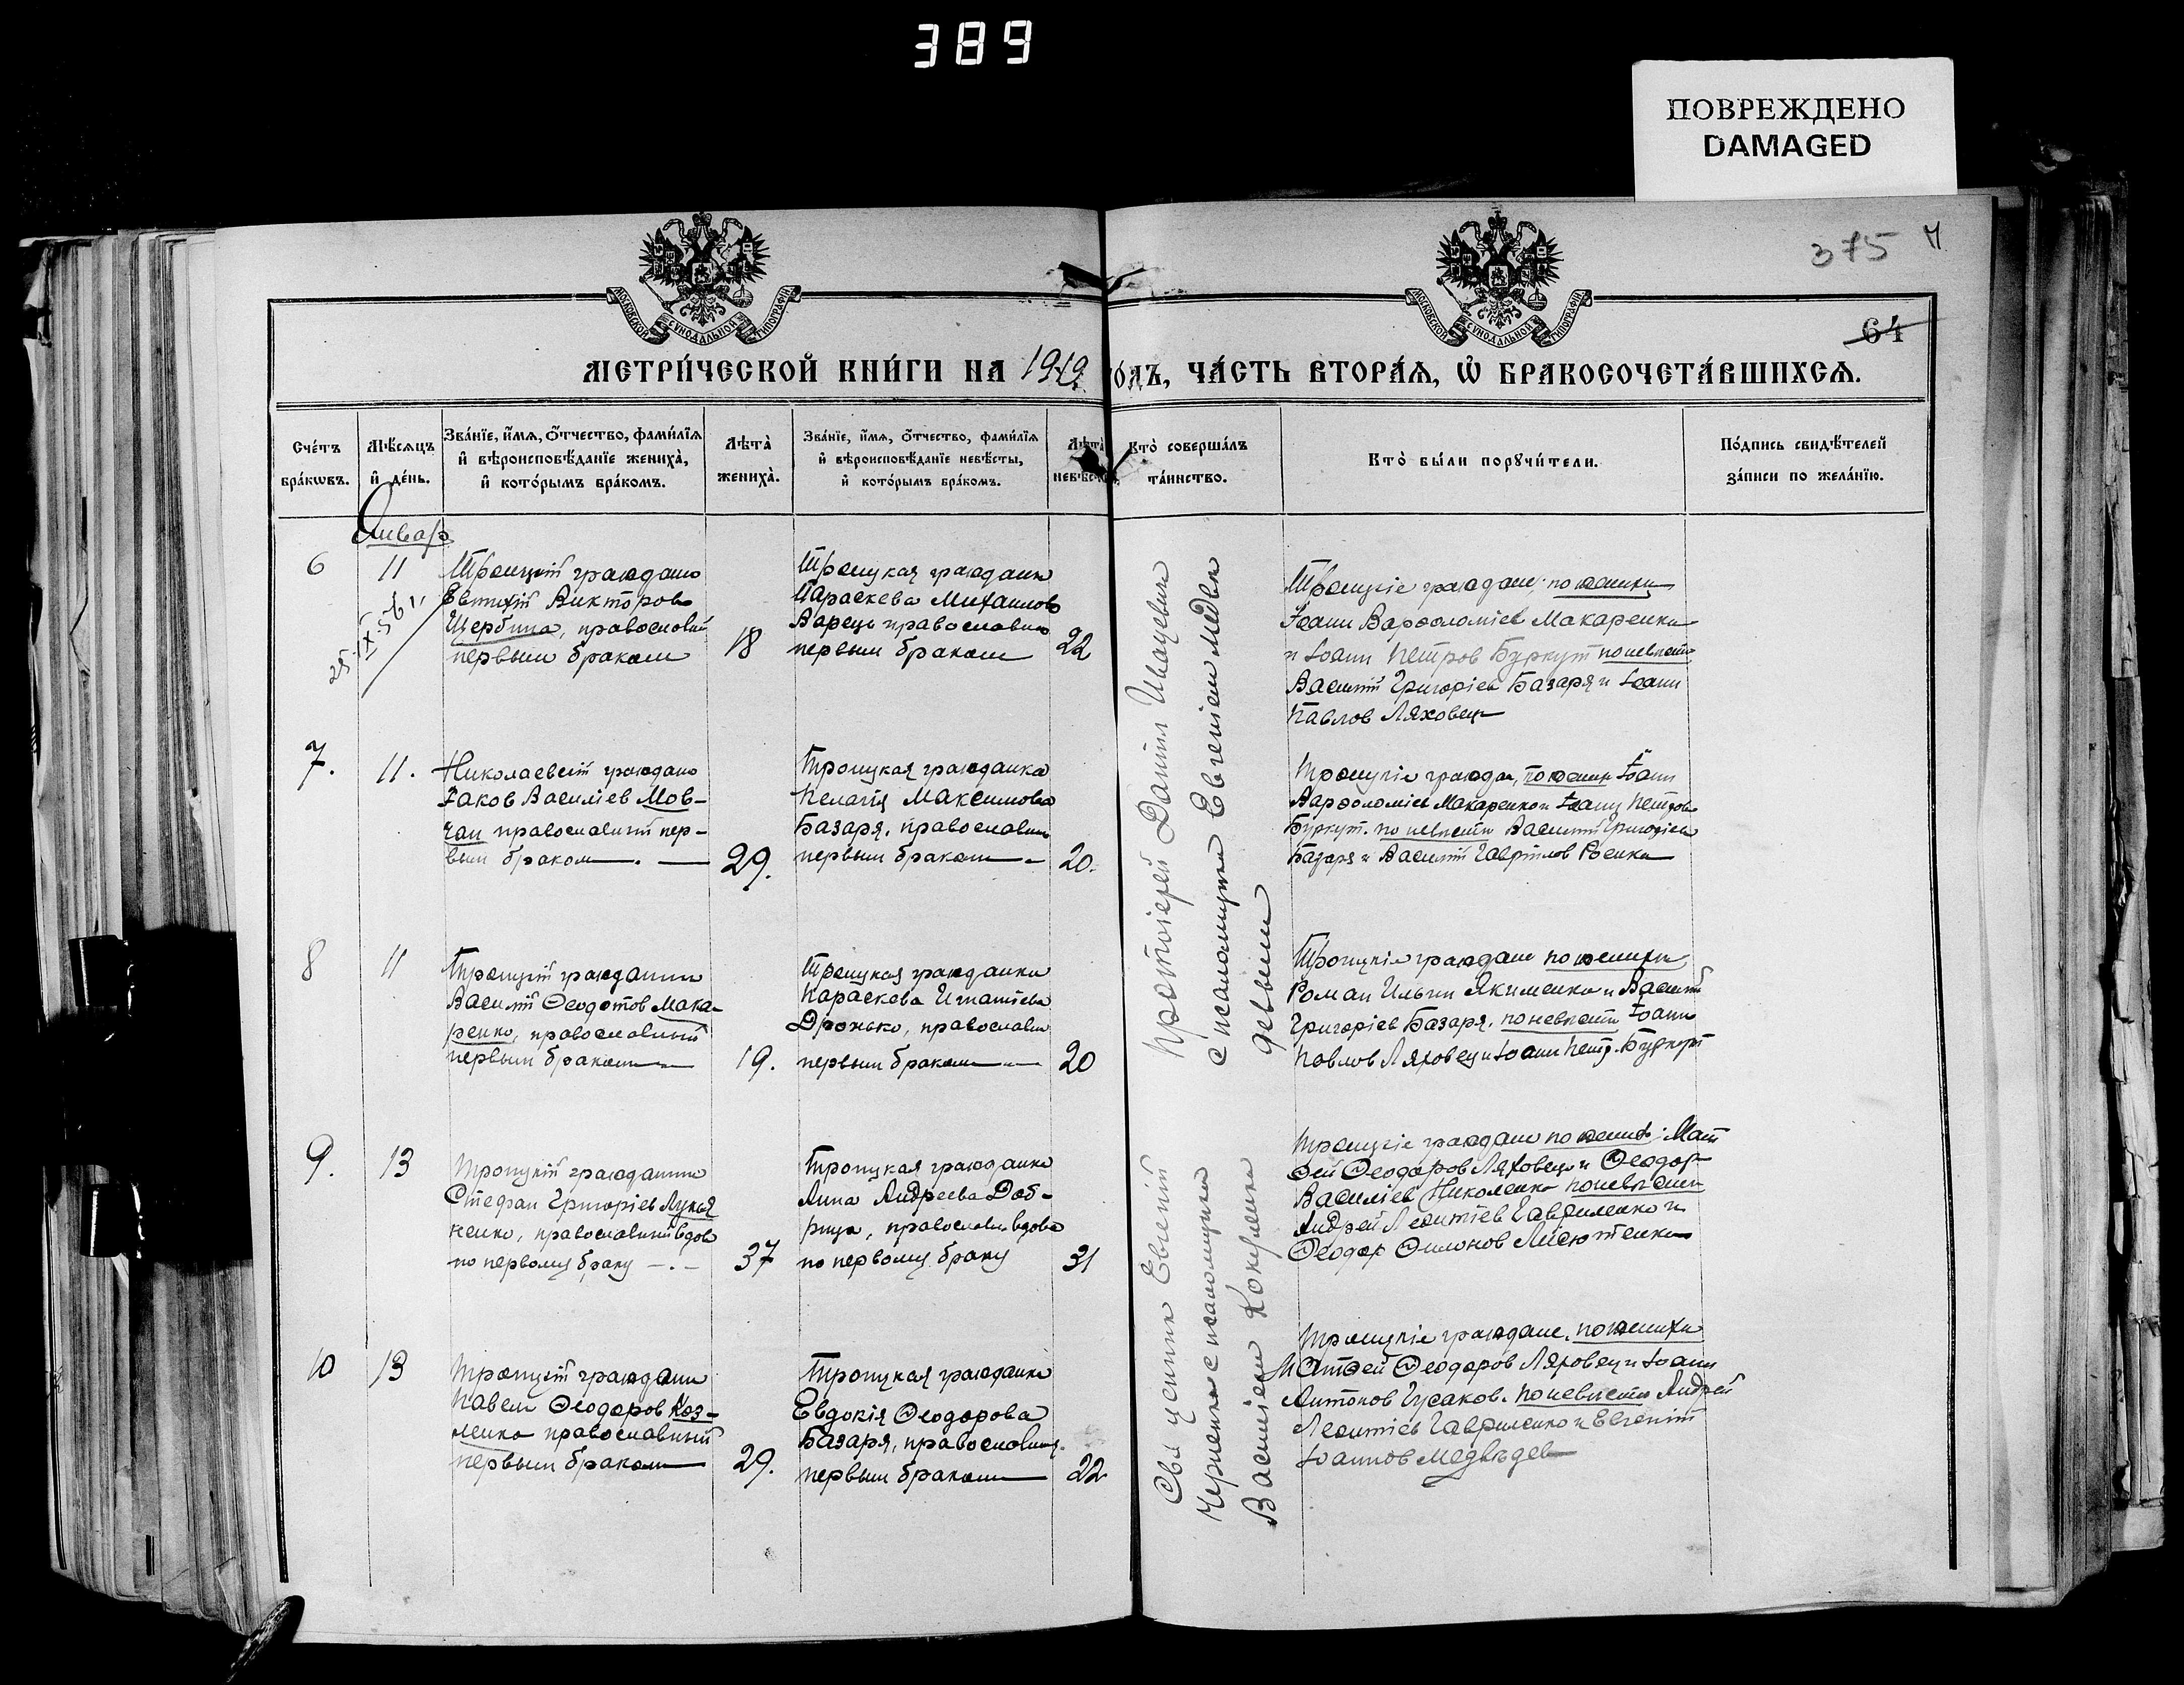 389
ПОВРЕЖДЕНО
DAMAGED
375
64
МОСКОВСКОЙ СУНОДАЛЬНОЙ ТИПОГРАФІИ
МОСКОВСКОЙ СУНОДАЛЬНОЙ ТИПОГРАФІИ
МЕТРИ́ЧЕСКОЙ КНИ́ГИ НА 1919 ГО́ДЪ, ЧА́СТЬ ВТОРА́Я, Ѽ БРАКОСОЧЕТА́ВШИХСЯ.
Сче́тъ бра́кωвъ.
Мѣ́сяцъ и҆ де́нь.
Зва́нїе, и҆́мя, ѻ҆́тчество, фами́лїя
и҆ вѣроисповѣ́данїе жениха̀,
и҆ кото́рымъ бра́комъ.
Лѣта̀ жениха̀.
Зва́нїе, и҆́мя, ѻ҆́тчество, фами́лїя
и҆ вѣроисповѣ́данїе невѣ́сты,
и҆ кото́рымъ бра́комъ.
Лѣта̀ невѣ́сты
Кто̀ соверша́лъ
та́инство.
Кто̀ бы́ли порꙋчи́тели.
По́дпись свидѣ́телей
за́писи по жела́нїю.
Январ
6
11
25 IX 56
Троицкій граждано
Евтихій Викторов
Щербина, православный
первым браком
18
Троицкая гражданк
Параскева Михаилова
Варец православною
первым браком
22
Протоіерей Даниил
с псаломщиком Евгеніем Медве
девым
Троицкіе граждане, по жениху
Іоанн Варѳоломіев Макаренко
и Іоанн Петров Буркут по невесте
Василій Григоріев Базаря и Іоанн
Павлов Ляховец
7.
11.
Николаевскій граждано
Іаков Василіев Мов-
чан православный пер-
вым браком
29.
Троицкая гражданка
Пелагія Максимова
Базаря, православн
первым браком
20.
Троицкіе граждан, по жениху Іоанн
Варѳоломіев Макаренко и Іоанн Петров
Буркут. по невесте Василий Григоріев
Базаря и Василій Гаврілов
8
11
Троицкій гражданин
Василій Ѳеодотов Мака-
ренко, православный
первым браком
19.
Троицкая гражданка
Параскева Игнатіева
Дронько, православн
первым браком
20
Троицкіе граждане по жениху
Роман Ильин Якименко и Василий
Григоріев Базаря. по невесте Іоанн
Павлов Ляховец и Іоанн Петр. Буркут
9.
13
Троицкій гражданин
Стефан Григоріев Лукья
ненко, православный вдов
по первому браку
37
Троицкая гражданка
Анна Андреева Доб-
рица, православн вдова
по первому браку
31
Священник Евгеній
Черненко с псаломщиком
Василіем
Троицкіе граждане по жениху: Мат
ѳей Ѳеодоров Ляховец и Ѳеодор
Василіев Николенко по невесте
Андрей Леонтіев Гавриленко и
Ѳеодор
10
13
Троицкій гражданин
Павел Ѳеодоров Коз-
ленко православный
первым браком
29.
Троицкая гражданка
Евдокія Ѳеодорова
Базаря, православная
первым браком
22
Троицкіе граждане, по жениху
Матѳей Ѳеодоров Ляховец и Іоанн
Антонов Гусаков. по невесте Андрей
Леонтіев Гавриленко и Евгеній
Іоаннов Медвѣдев